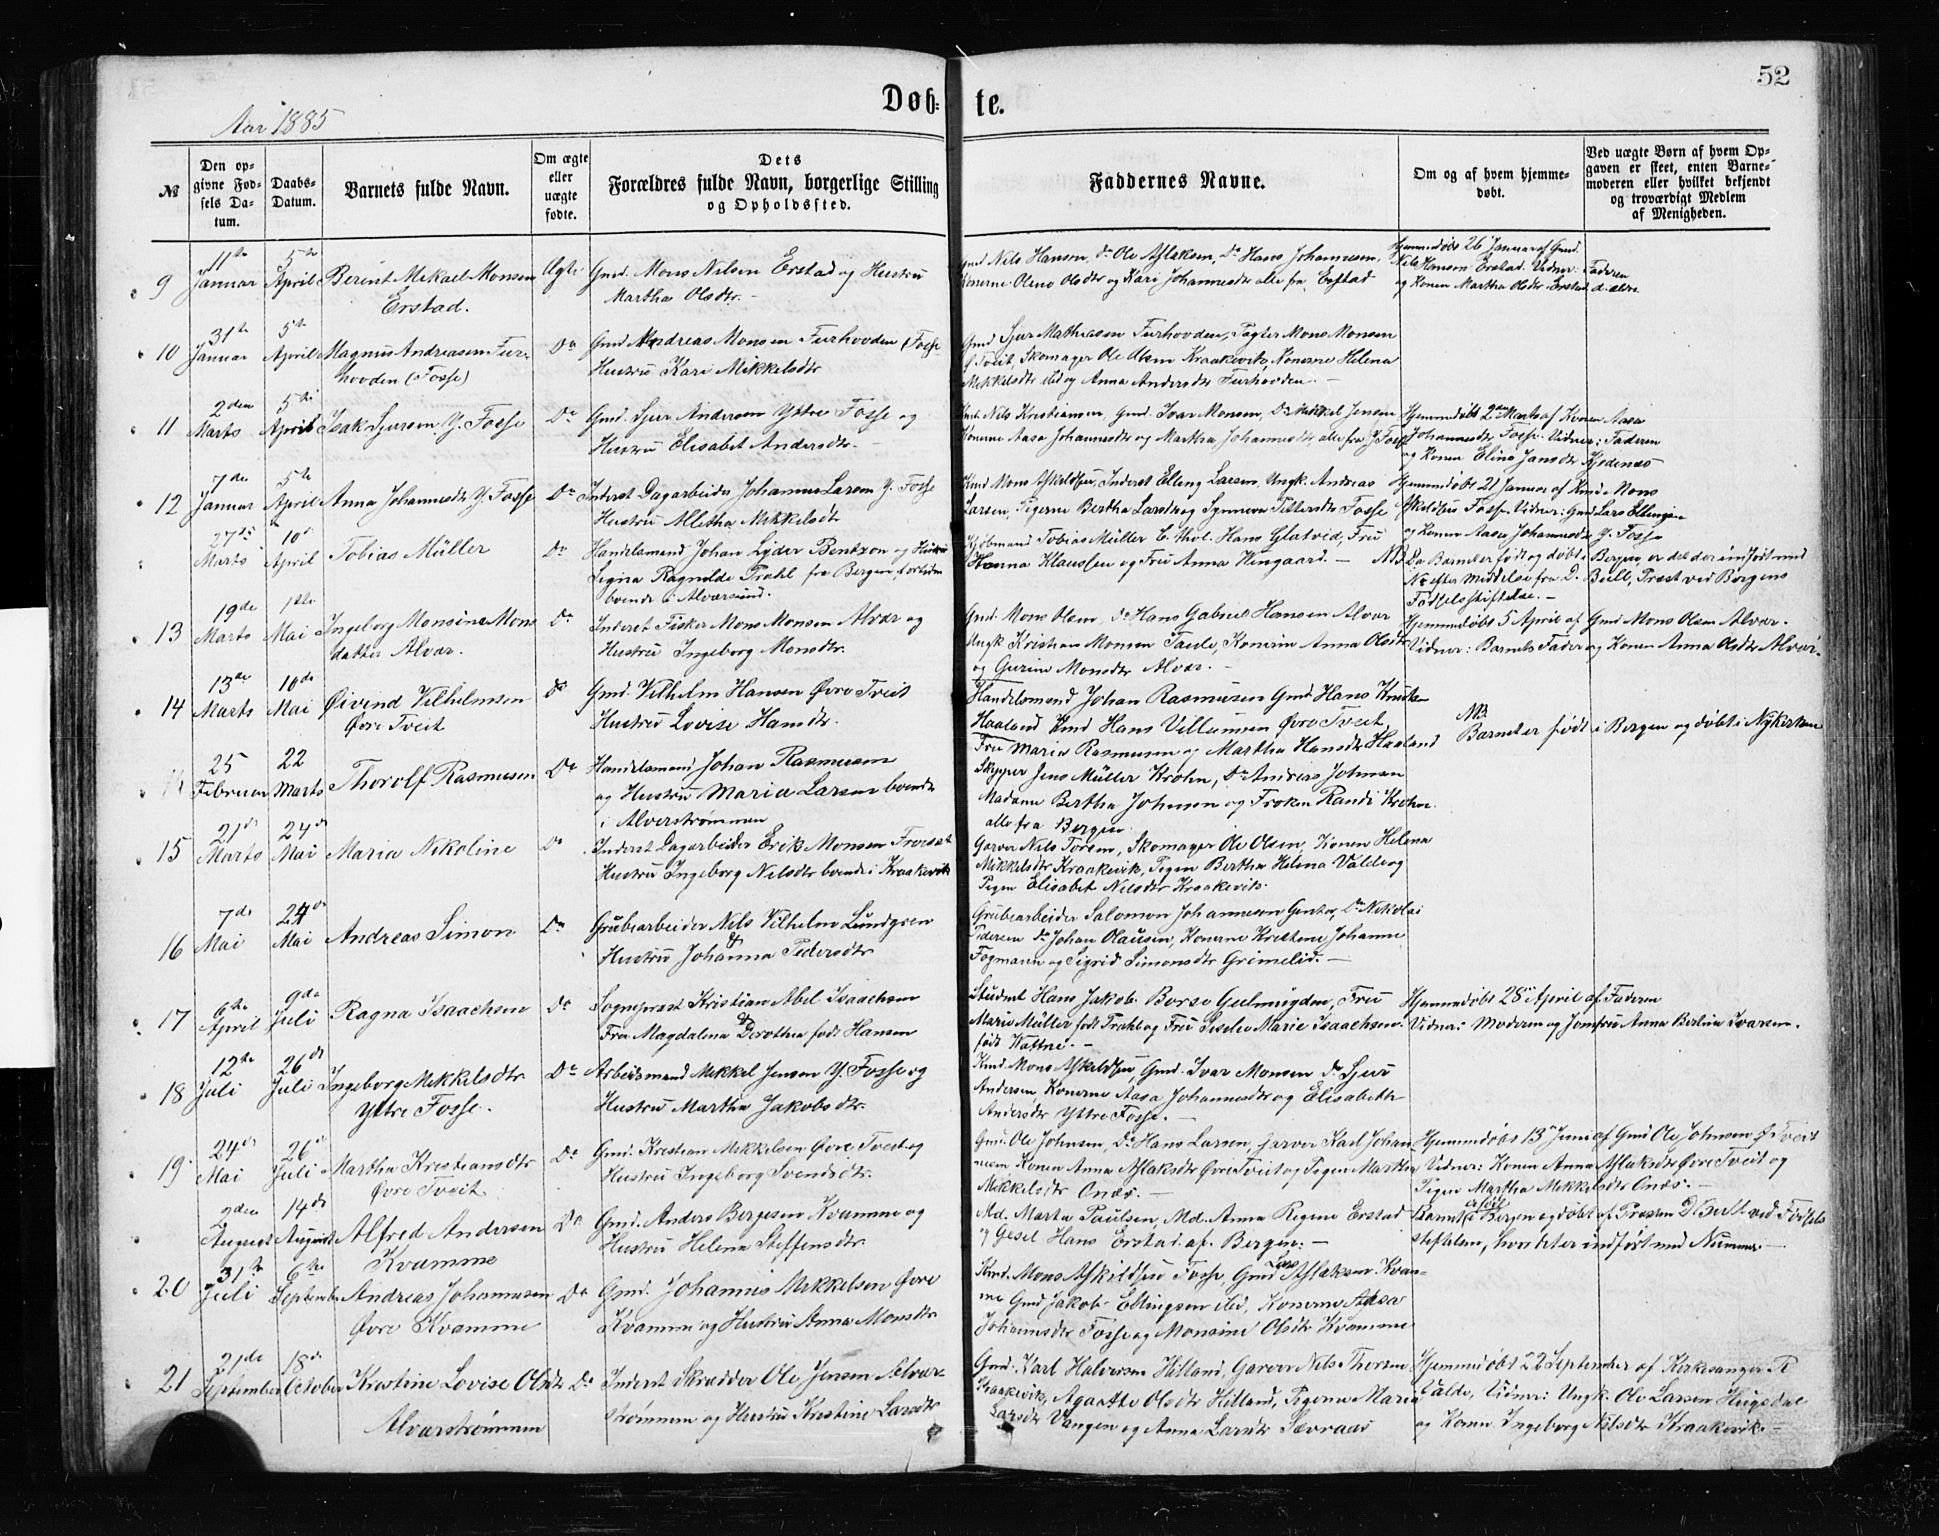 52
Døb- te.
Aar 1885
№
Den opgivne Fødsels Datum.
Daabs-Datum.
Barnets fulde Navn.
Om ægte eller uægte fødte.
Dets Forældres fulde Navn, borgerlige Stilling og Opholdssted.
Faddernes Navne.
Om og af hvem hjemmedøbt.
Ved uægte Børn af hvem Opgaven er skeet, enten Barnemoderen eller hvilket bekjendt og troværdigt Medlem af Menigheden.
9 11te Januar 5te April Berint Mikael Monsen Erstad. Ægte Gmd. Mons Nilsen Erstad og Hustru Martha Olsdtr.
Gmd Nils Hansen, do Ole Aslaksen, Do Hans Johannesen, Konerne Olena Olsdtr og Kari Johannesdtr alle fra Erstad
Hjemmedøbt 26 Januar af Gmd. Nils Hansen Erstad. Vidner: Faderen og Konen Martha Olsdtr Erstad d. ældre.
10 31te Januar 5te April Magnus Andreasen Furhovden (Fosse) Do Gmd Andreas Monsen Furhovden (Fosse Hustru Kari Mikkelsdtr
Gmd Sjur Mathiasen Furhovden, Pagter Mons Monsen Tveit, Skomager Ole Olsen Kraakevik, Konerne Helena Mikkelsdtr ibid og Anna Andersdtr Furhovden. —
11 2den Marts 5te April Isak Sjursen Y. Fosse Do Gmd. Sjur Andersen Yttre Fosse og Hustru Elisabet Andersdtr. —
Kmd Nils Kristiansen, Gmd. Ivar Monsen, Do Mikkel Jensen Konerne Aasa Johannesdtr og Martha Johannesdtr, alle fra Y. Fosse
Hjemmedøbt 2den Marts af Konen Aasa Johannesdtr Fosse. Vidner: Faderen og Konen Elina Jansdtr Kjedenæs
12 7de Januar 5te April Anna Johannesdtr Y. Fosse Do Inderst Dagarbeider Johannes Larsen Y. Fosse Hustru Alletha Mikkelsdt
Kmd Mons Askildsen, Inderst Elling Larsen, Ungk. Andreas Larsen, Pigerne Bertha Larsdtr og Synneva Pettersdtr Fosse
Hjemmedøbt 21 Januar af Kmd Mons Askildsen Fosse. Vidner: Gmd Lars Ellingsen og Konen Aasa Johannesdtr Y. Fosse
27de Marts 10de April Tobias Müller Do Handelsmand Johan Lyder Bentzon og Hustru Signa Ragnilde Prahl fra Bergen, fortiden boende i Alversund.
Kjøbmand Tobias Müller E. thol. Hans Glatved, Fru Hanna Klaussen og Fru Anna Wengaard. —
NB. Da Barnet er født og døbt i Bergen er det der indført med No efter Middelse fra D. Bull, Præst ved Bergens Fødselsstiftelse. —
13 19de Marts 1ste Mai Ingeborg Monsine Monsdatter Alvær. Do Inderst Fisker Mons Monsen Alvær og Hustru Ingeborg Monsdtr.
Gmd. Mons Olsen, do Hans Gabriel Hansen Alvær Ungk Kristian Monsen Taule, Konerne Anna Olsdtr og Gurine Monsdtr Alvær. —
Hjemmedøbt 5 April af Gmd Mons Olsen Alvær. Vidner: Barnets Fader og Konen Anna Olsdtr Alvær.
14 13de Marts 10de Mai Øivind Vilhelmsen Øvre Tveit Do Gmd. Vilhelm Hansen Øvre Tveit Hustru Lovise Hansdtr.
Handelsmand Johan Rasmusen Gmd Hans Knutsen Haaland Kmd Hans Villumsen Øvre Tveit, Fru Maria Rasmusen og Martha Hansdtr Haaland
NB. Barnet er født i Bergen og døbt i Nykirken
25 Februar 22 Marts Thorolf Rasmusen Do Handelsmand Johan Rasmusen og Hustru Maria Larsen boende i Alverstrømmen
Skipper Jens Müller Krohn, Do Andreas Johnsen Madame Bertha Johnsen og Frøken Randi Krohn alle fra Bergen
15 21de Marts 24de Mai Maria Nikoline Do Inderst Dagarbeider Erik Monsen Hustru Ingeborg Nilsdtr boende i Kraakevik
Garver Nils Torsen, Skomager Ole Olsen, Konen Helena Mikkelsdtr Kraakevik, Pigen Bertha Helena Valde og Pigen Elisabet Nilsdtr Kraakevik.
16 7de Mai 24de Mai Andreas Simon Do Grubearbeider Nils Vilhelm Lundgren & Hustru Johanna Pedersdtr
Grubearbeider Salomon Johannesen, Do Nikolai Pedersen do Johan Olausen, Konerne Kristine Johanne Fogmann og Sigrid Simonsdtr Grimelid. —
17 6te April 9de Juli Ragna Isaachsen Do Sogneprest Kristian Abel Isaachsen & Fru Magdalena Dorothea født Hansen
Student Hans Jakob Børse, Fru Maria Müller født Prahl og Fru Marie Isaachsen. født
Hjemmedøbt 28de April af Faderen Vidner: Moderen og Jomfru Anna Berlina Ivarsen.
18 12te Juli 26de Juli Ingeborg Mikkelsdtr Yttre Fosse. Do Arbeidsmand Mikkel Jensen Y. Fosse og Hustru Martha Jakobsdtr.
Kmd. Mons Askildsen, Gmd. Ivar Monsen do Sjur Andersen, Konerne Aasa Johannesdtr og Elisabeth Andersdtr Yttre Fosse. —
19 24de Mai 26de Juli Martha Kristiansdtr Øvre Tveit Do Gmd. Kristian Mikkelsen Øvre Tveit og Hustru Ingeborg Svendsdtr.
Gmd. Ole Johnsen, Do Hans Larsen, Garver Karl Johannesen Konen Anna Aslaksdtr Øvre Tveit og Pigen Martha Mikkelsdtr Onæs. —
Hjemmedøbt 13de Juni af Gmd Ole Johnsen Ø. Tveit Vidner: Konen Anna Aslaksdtr Øvre Tveit og Pigen Martha Mikkelsdtr Onæs. —
2den August 14de August Alfred Andersen Kvamme Do Gmd. Anders Bergesen Kvamme og Hustru Helena Steffensdtr.
Md. Marta Paulsen, Md. Anna Regine Erstad og Gesel Hans Erstad af Bergen. —
Barnet er født i Bergen og døbt af Præsten D Bull ved Fødselsstiftelsen, hvor det er indført med Nummer —
20 31te Juli 6te September Andreas Johannesen Øvre Kvamme Do Gmd. Johannes Mikkelsen Øvre Kvamme og Hustru Anna Monsdtr
Kmd. Mons Askildsen Fosse, Gmd Lars Aslaksen Kvamme Gmd Jakob Ellingsen ibid, Konerne Aasa Johannsdtr Fosse og Monsine Olsdtr Kvamme
21 21de September 18de October Kristine Lovise Olsdtr Alverstrømmen Do Inderst Skrædder Ole Jensen Alverstrømmen og Hustru Kristine Larsdtr
Gmd. Karl Halversen Hilland, Garver Nils Thorsen Kraakevik, Agaatte Olsdtr Hilland, Pigerne Maria Larsdtr Vangen og Anna Larsdtr Sævraas
Hjemmedøbt 22 September af Kirkesanger R Valde, Vidner: Ungk. Ole Larsen Hugsdal og Konen Ingeborg Nilsdtr Kraakevik. —